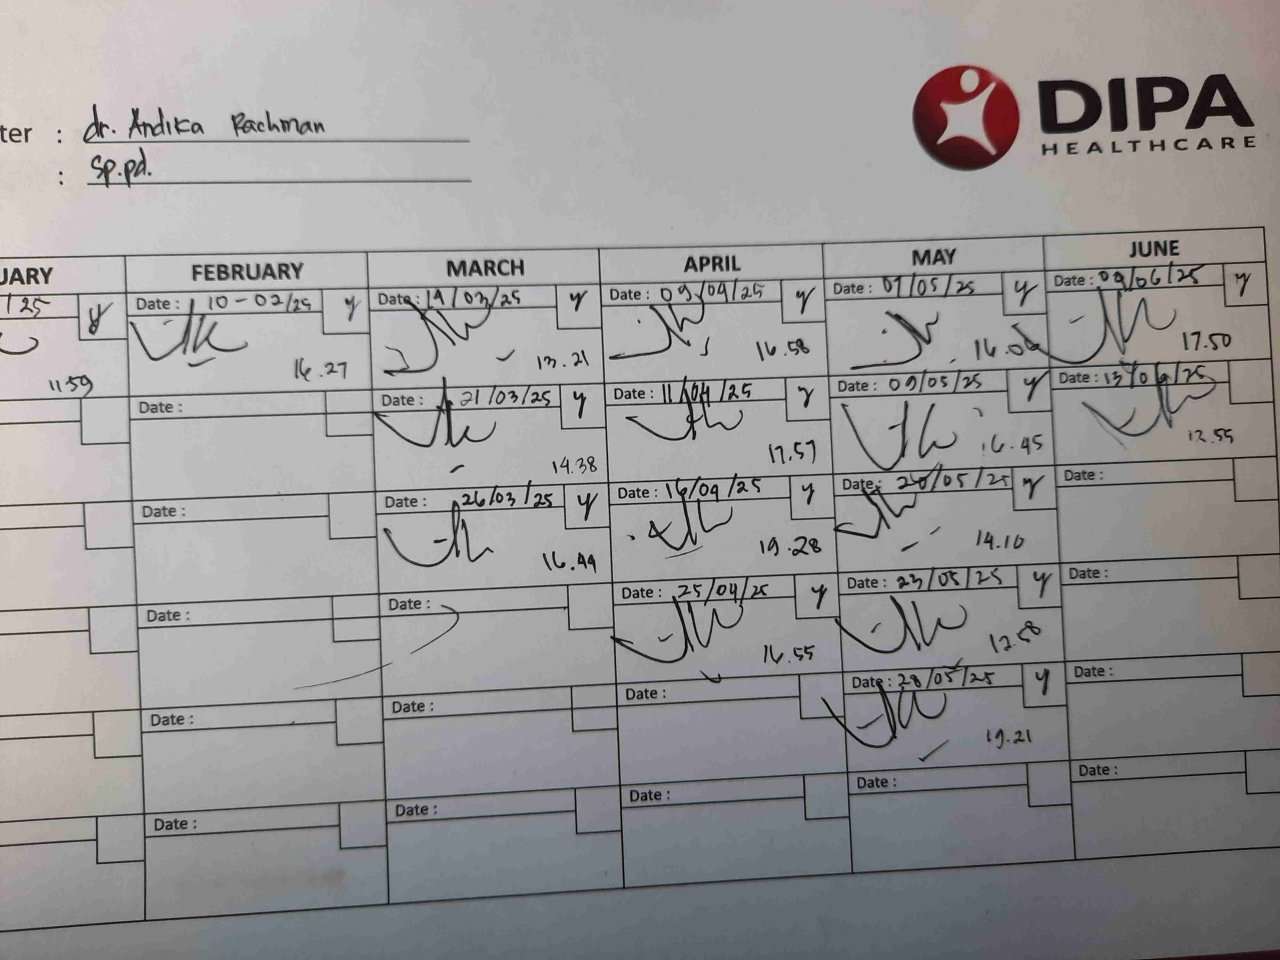 ter : dr. Andika Rachman
: Sp.pd.
DIPA
HEALTHCARE
UARY FEBRUARY MARCH APRIL MAY JUNE
/25 y Date : 10-02/25 y Date : 19/03/25 y Date : 09/04/25 y Date : 07/05/25 y Date : 09/06/25 y
11.59 16.27 13.21 16.58 16.06 17.50
Date : Date : 21/03/25 y Date : 11/04/25 y Date : 09/05/25 y Date : 13/06/25
14.38 17.57 16.45 12.55
Date : Date : 26/03/25 y Date : 16/04/25 y Date : 20/05/25 y Date :
16.44 19.28 14.10
Date : Date : Date : 25/04/25 y Date : 23/05/25 y Date :
16.55 12.58
Date : Date : Date : Date : 28/05/25 y Date :
19.21
Date : Date : Date : Date : Date :